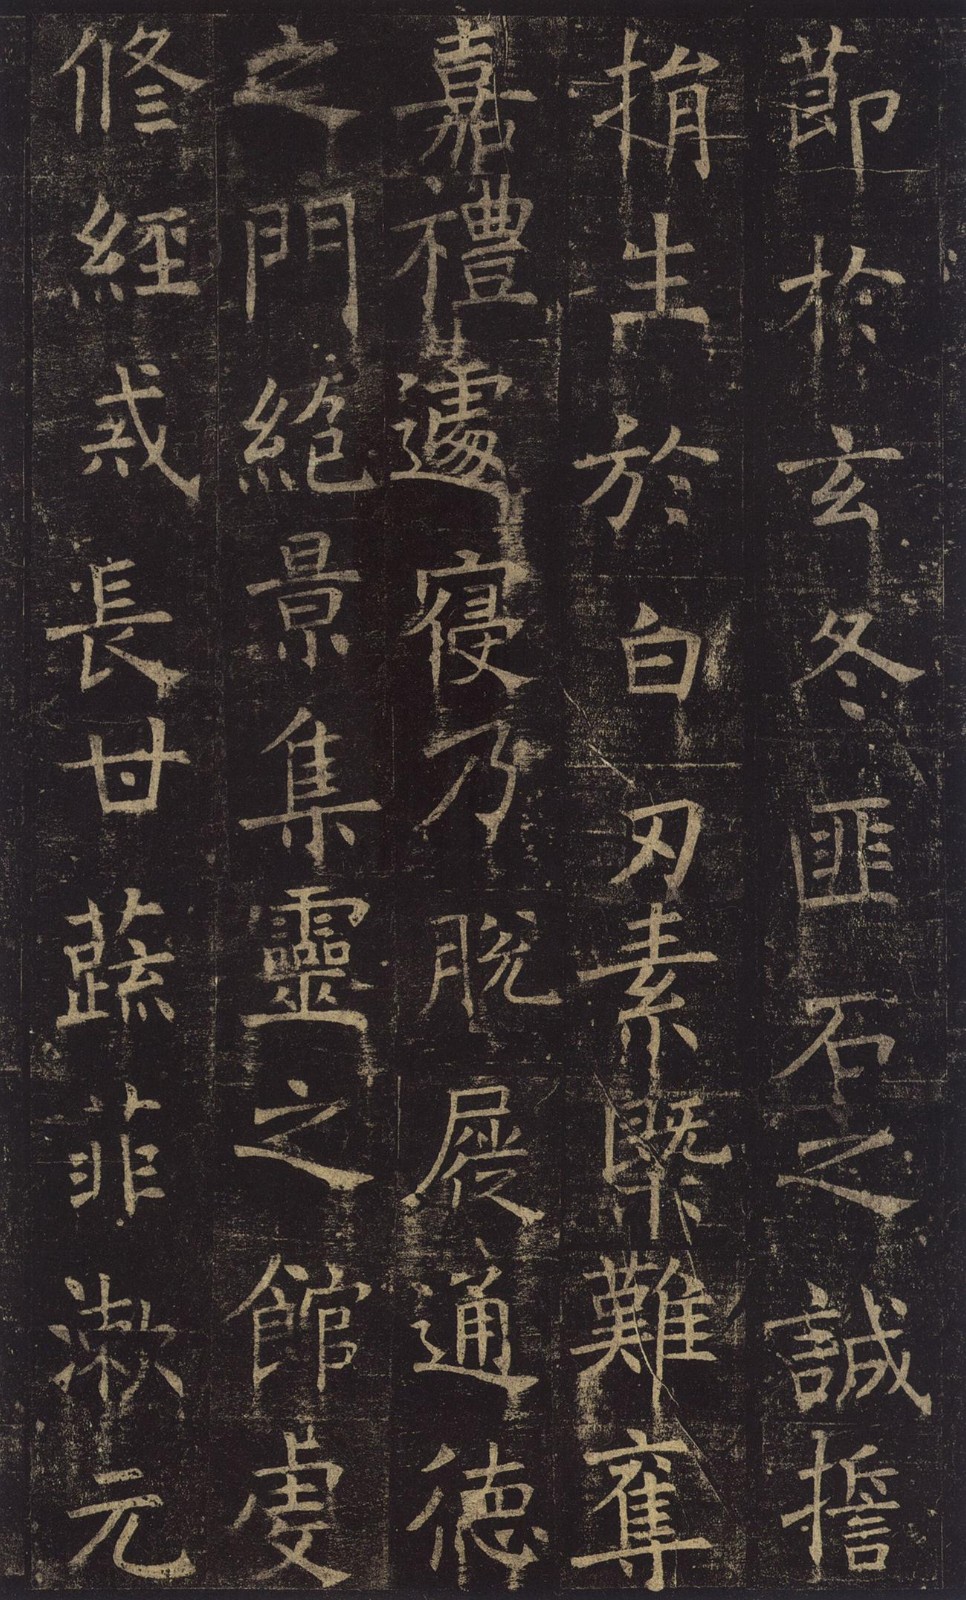 莭於玄冬匪石之誠擔
捐生於白刃素槩難奪
嘉禮遽寑乃脫屣通德
之門絶景集靈之館虔
修經戒長甘蔬菲漱元